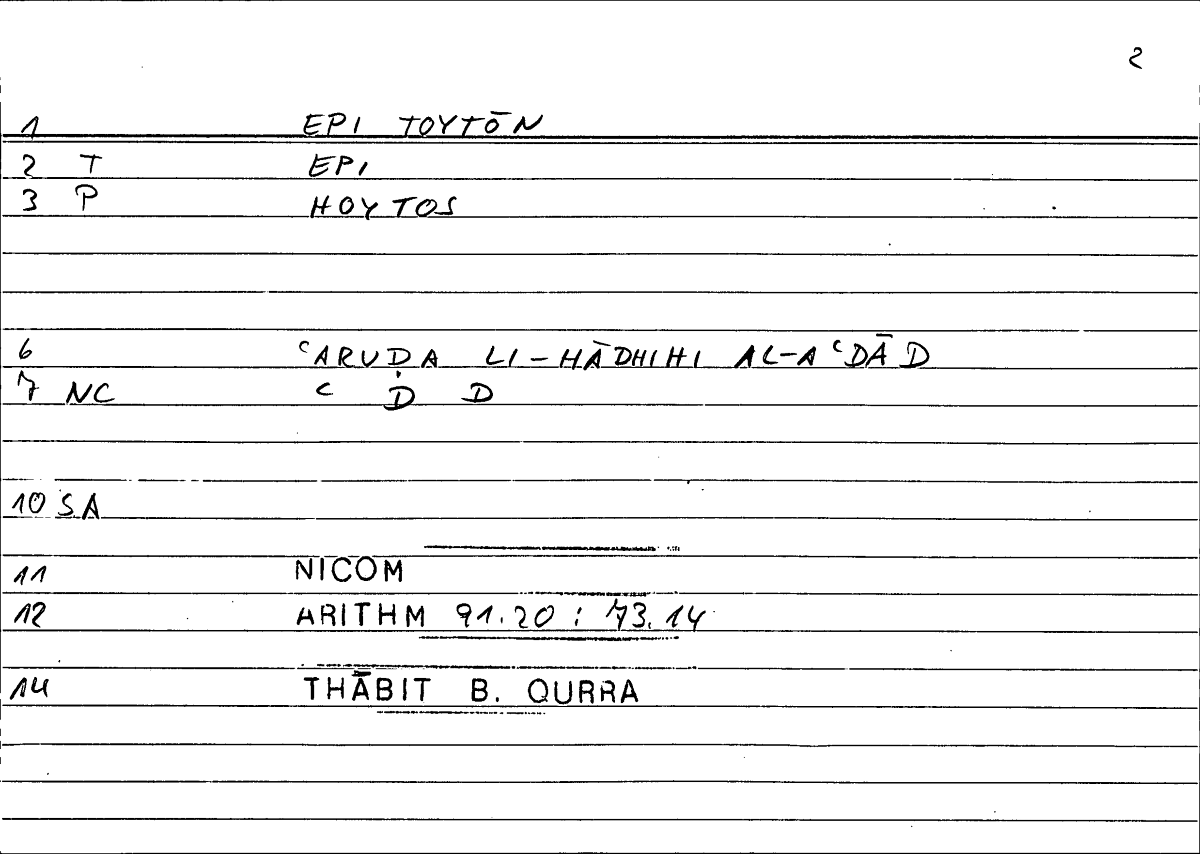 2
1 EPI TOYTŌN
2 T EPI
3 P HOYTOS
6 ʿARUḌA LI-HĀDHIHI AL-AʿDĀD
7 NC ʿ Ḍ D
10 SA
11 NICOM
12 ARITHM 91.20 : 73.14
14 THĀBIT B. QURRA